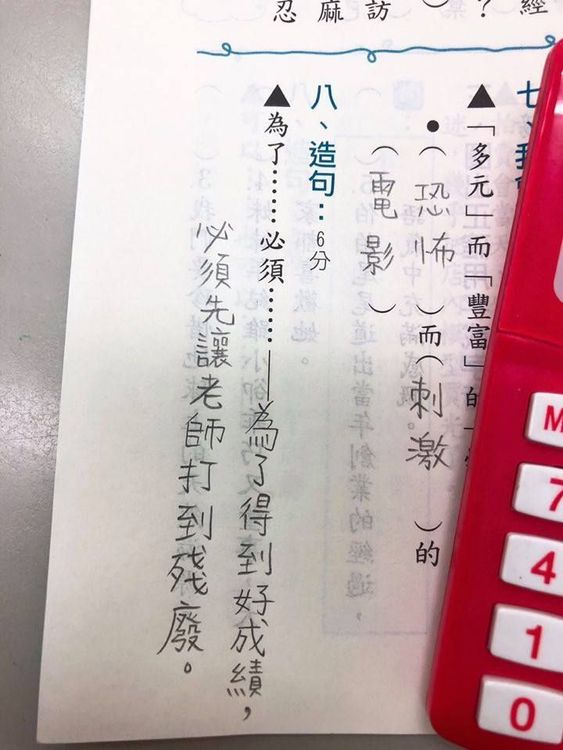 經
？
訪
麻
忍
七、
▲「多元」而「豐富」的
●（恐怖）而（刺激）的
（電影）
八、造句：6分
▲為了……必須……——為了得到好成績，
必須先讓老師打到殘廢。
M
7
4
1
0